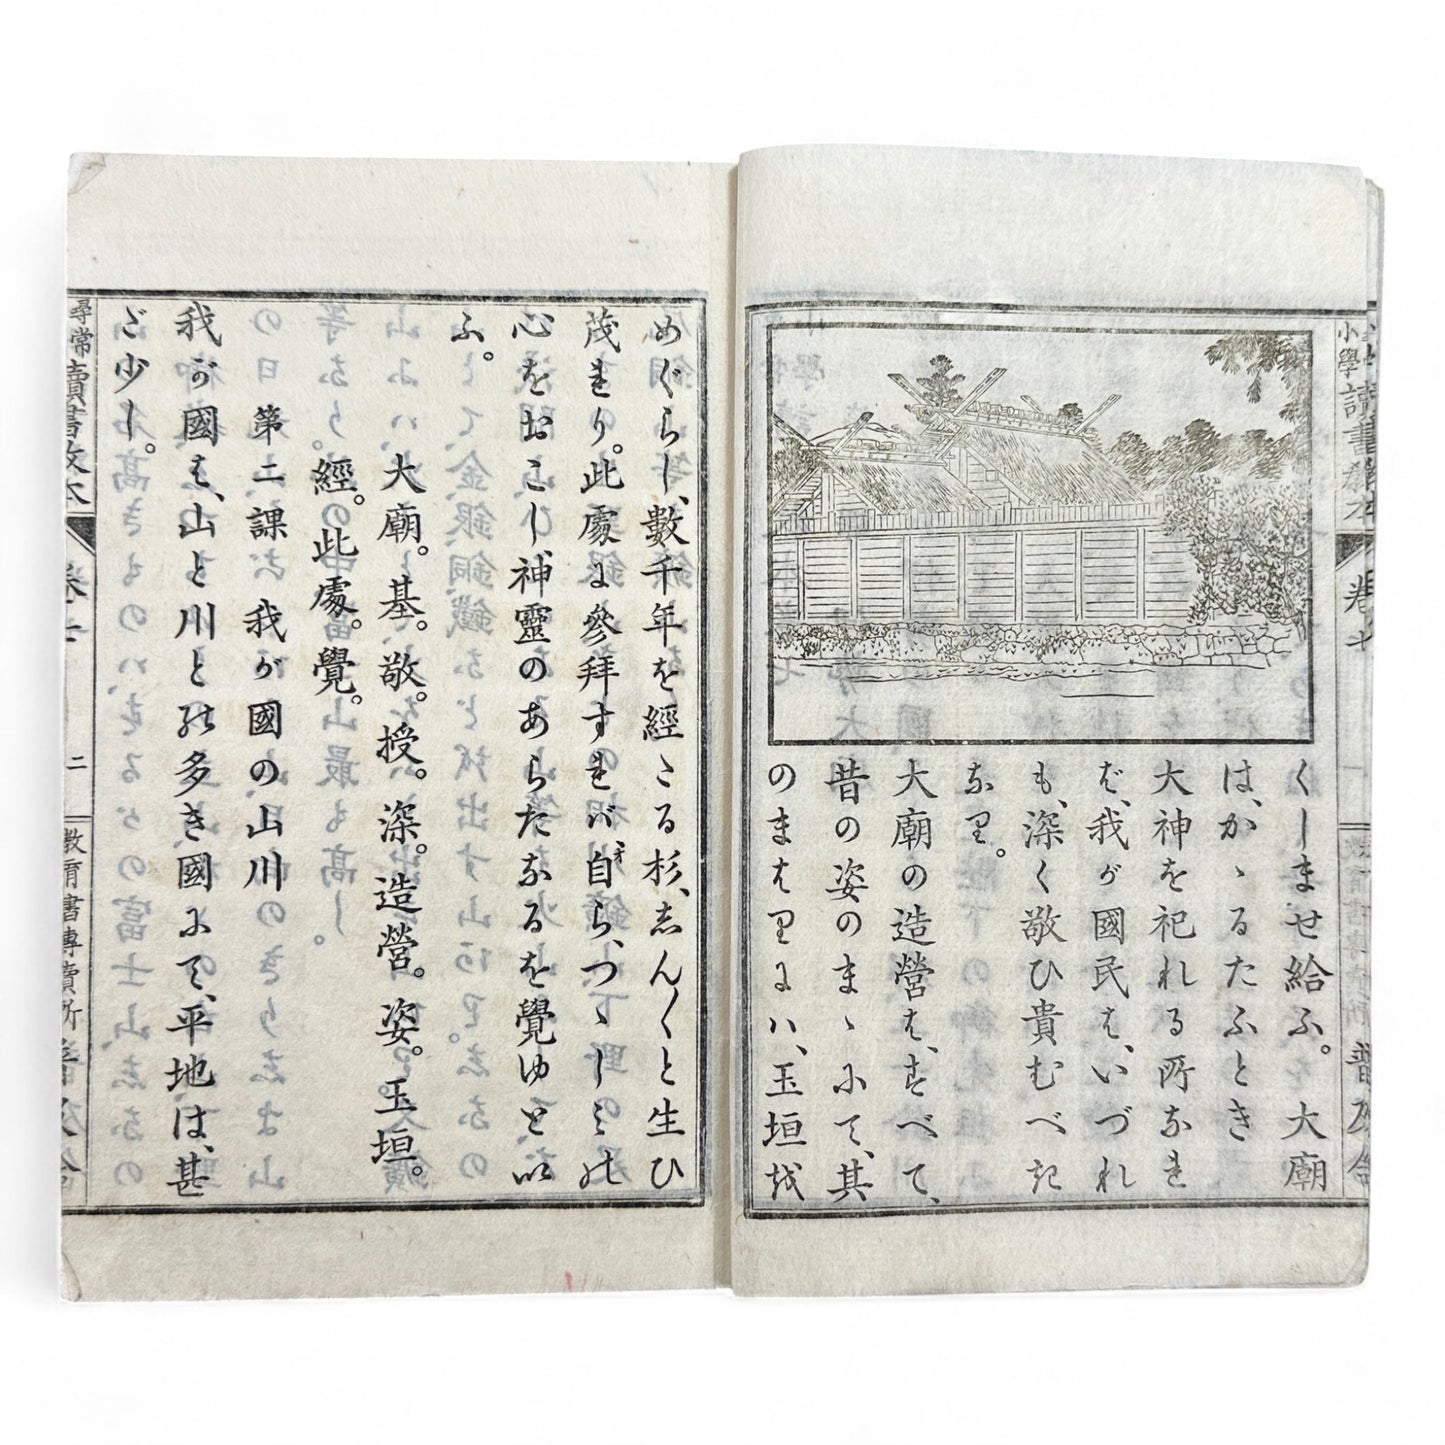 くしませ給ふ。大廟
は、かゝるたふとき
大神を祀れる所なれ
ば、我が國民は、いづれ
も、深く敬ひ貴むべき
なり。
大廟の造營は、すべて、
昔の姿のまゝにて、其
のまはりには、玉垣を
めぐらし、數千年を經たる杉、しん〳〵と生ひ
茂れり。此處に參拜すれば、自ら、つゝしみの
心をおこし、神靈のあらたなるを覺ゆとい
ふ。
大廟。基。敬。授。深。造營。姿。玉垣。
經。此處。覺。
第二課 我が國の山川
我が國は、山と川との多き國にて、平地は、甚
だ少し。
尋常
小學
讀書教本
卷七
二
教育書專賣所
普及舍